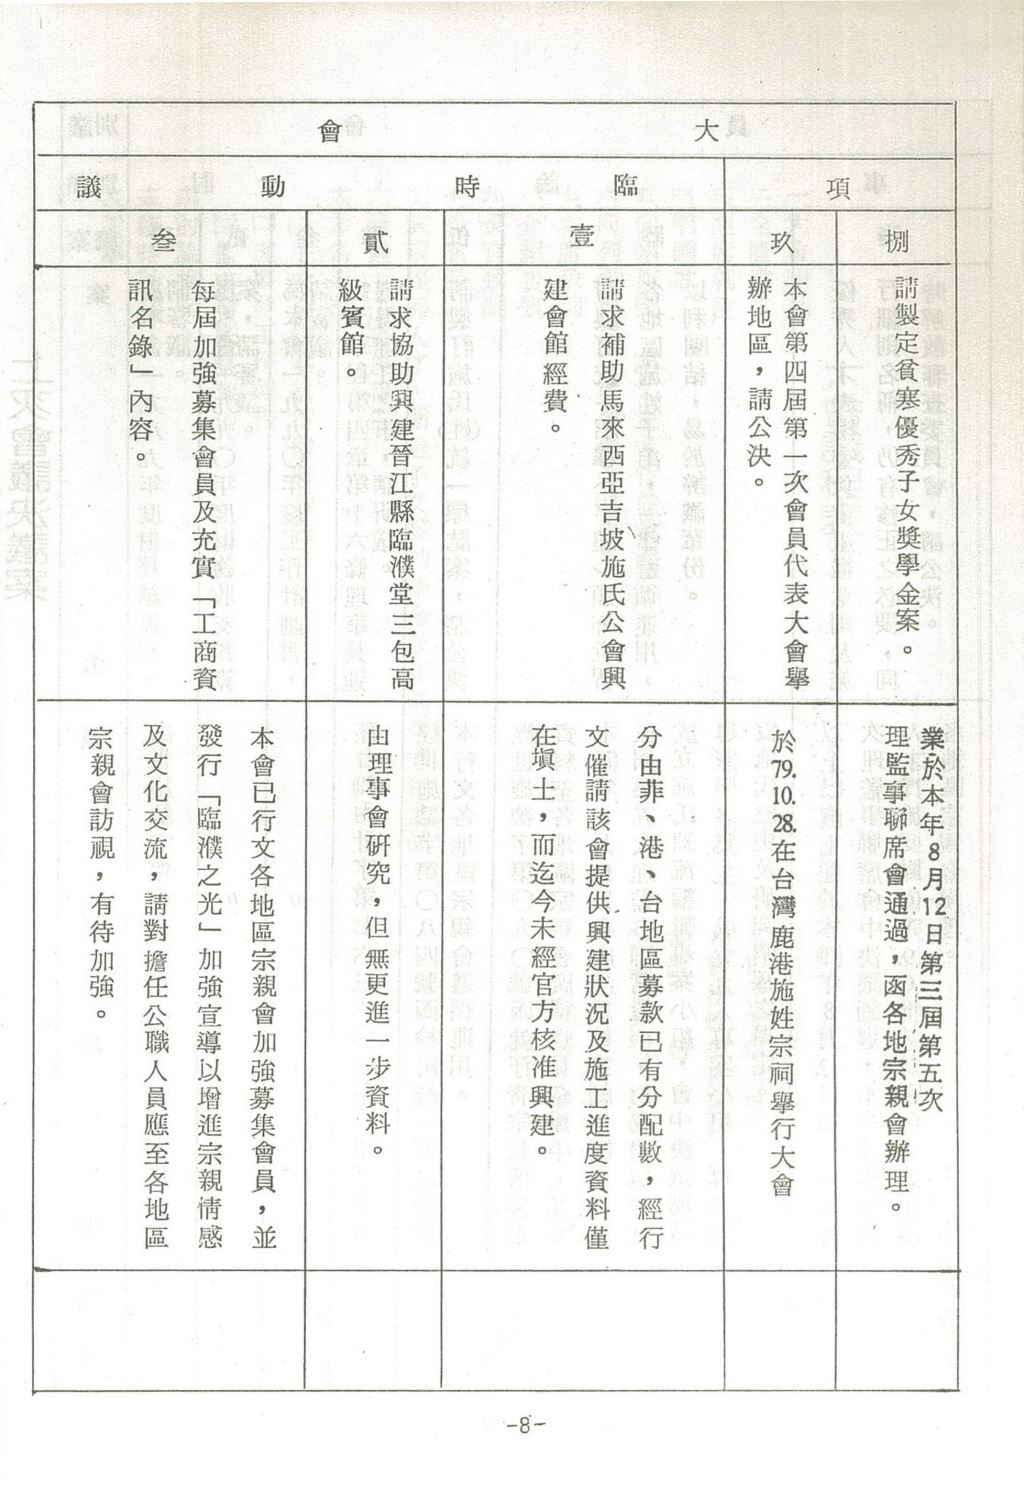 大會
項
臨時動議
捌
請製定貧寒優秀子女獎學金案。
業於本年8月12日第三屆第五次
理監事聯席會通過，函各地宗親會辦理。
玖
本會第四屆第一次會員代表大會舉
辦地區，請公決。
於79.10.28.在台灣鹿港施姓宗祠舉行大會
壹
請求補助馬來西亞吉坡施氏公會興
建會館經費。
分由菲、港、台地區募款已有分配數，經行
文催請該會提供興建狀況及施工進度資料僅
在塡土，而迄今未經官方核准興建。
貳
請求協助興建晉江縣臨濮堂三包高
級賓館。
由理事會研究，但無更進一步資料。
叁
每屆加強募集會員及充實「工商資
訊名錄」內容。
本會已行文各地區宗親會加強募集會員，並
發行「臨濮之光」加強宣導以增進宗親情感
及文化交流，請對擔任公職人員應至各地區
宗親會訪視，有待加強。
-8-